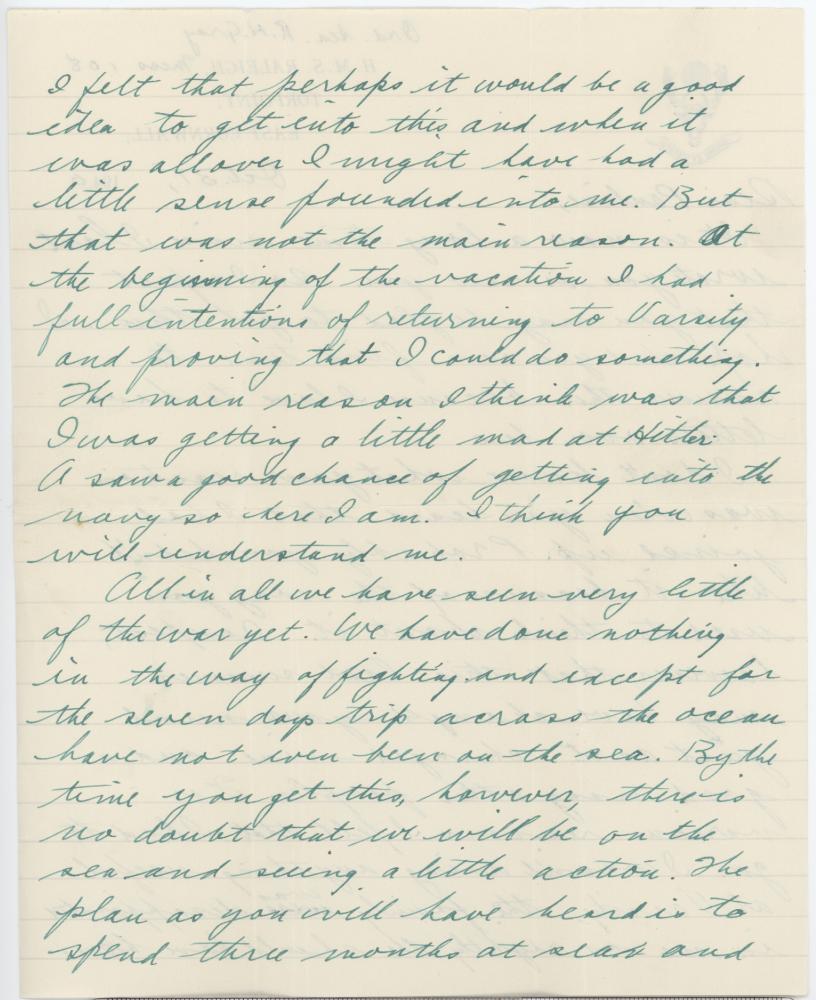 I felt that perhaps it would be a good
idea to get into this and when it
was all over I might have had a
little sense pounded into me. But
that was not the main reason. At
the beginning of the vacation I had
full intentions of returning to Varsity
and proving that I could do something.
The main reason I think was that
I was getting a little mad at Hitler.
A saw a good chance of getting into the
navy so here I am. I think you
will understand me.
All in all we have seen very little
of the war yet. We have done nothing
in the way of fighting and except for
the seven days trip across the ocean
have not even been on the sea. By the
time you get this, however, there is
no doubt that we will be on the
sea and seeing a little action. The
plan as you will have heard is to
spend three months at sea and